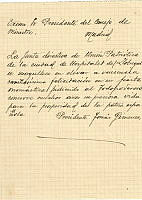 Excmo Sr Presidente del Consejo de
Ministros.
Madrid
La Junta directiva de Unión Patriótica
de la ciudad de Hospitalet de Llobregat
se complace en elevar a vuecencia
felicitación en su fiesta
onomástica pidiendo al Todopoderoso
conserve muchos años su preciosa vida
para la prosperidad de la patria espa-
ñola
Presidente Tomás Giménez